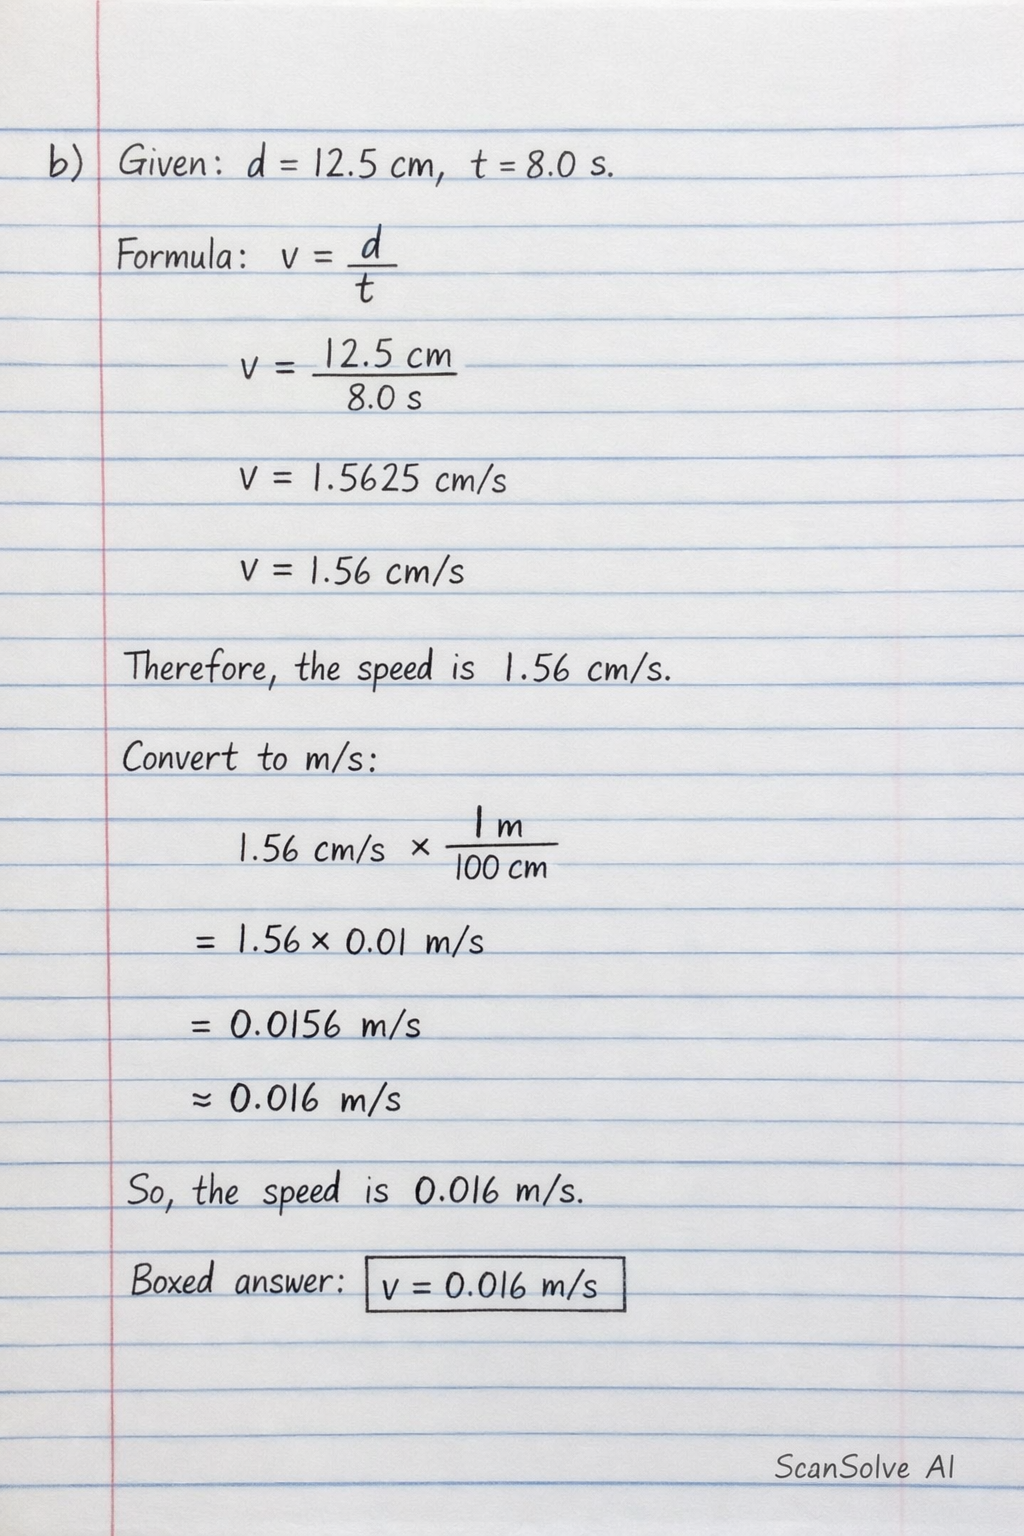 b) Given: d = 12.5 cm, t = 8.0 s.
Formula: v = d/t
v = 12.5 cm/8.0 s
v = 1.5625 cm/s
v = 1.56 cm/s
Therefore, the speed is 1.56 cm/s.
Convert to m/s:
1.56 cm/s × 1 m/100 cm
= 1.56 × 0.01 m/s
= 0.0156 m/s
≈ 0.016 m/s
So, the speed is 0.016 m/s.
Boxed answer: v = 0.016 m/s
ScanSolve AI